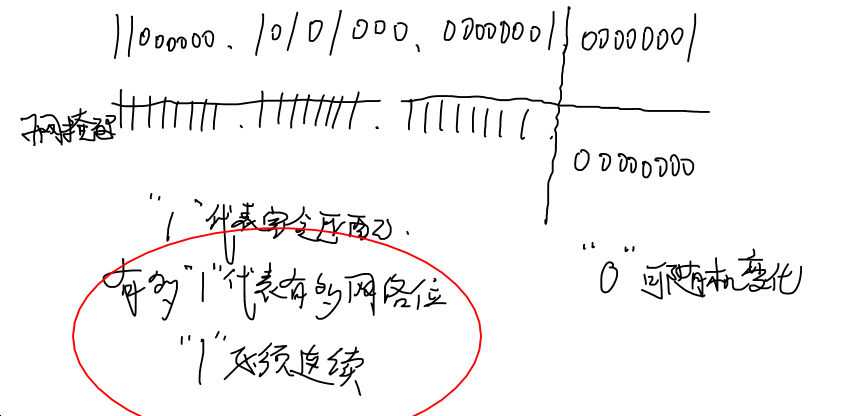 11000000. 10101000. 00000001 00000001
子网掩码 11111111. 11111111. 11111111. 00000000
"1"代表完全匹配
"0"可随机变化
有多"1"代表有多网络位
"1"必须连续